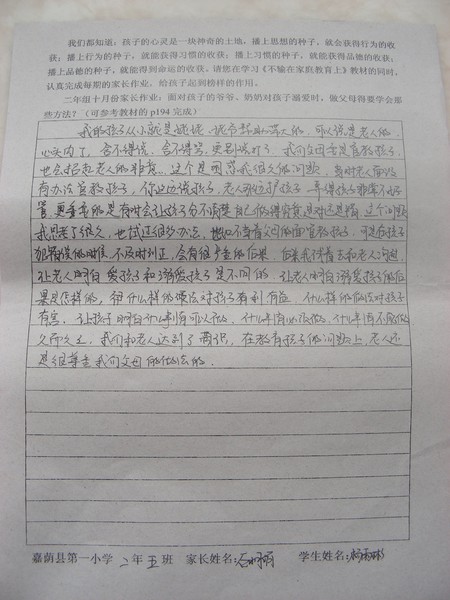 我们都知道：孩子的心灵是一块神奇的土地，播上思想的种子，就会获得行为的收
获；播上行为的种子，就能获得习惯的收获；播上习惯的种子，就能获得品德的收获；
播上品德的种子，就能得到命运的收获。请您在学习《不输在家庭教育上》教材的同时，
认真完成每期的家长作业，给孩子起到榜样的作用。
二年级十月份家长作业：面对孩子的爷爷、奶奶对孩子溺爱时，做父母得要学会那
些方法？（可参考教材的 p194 完成）
我的孩子从小就是姥姥、姥爷帮助带大的，可以说是老人的
心头肉了，舍不得说，舍不得骂，更别谈打了，我们父母要是管教孩子，
也会招惹老人的。这个是困惑我很久的问题，有时老人面没
有办法管教孩子，你这边说孩子，老人可护孩子，弄得孩子非常不好
管，更重要的是有时会让孩子分不清楚自己做得究竟是对还是错，这个问题
我思考了很久，也试过很多办法，不当着父母的面管教孩子，可是在孩子
犯错误的时候，不及时纠正，会有很严重的后果，后来我试着去和老人沟通
让老人明白爱孩子和溺爱孩子是不同的，让老人明白溺爱孩子的后
果是怎样的，和什么样的做法对孩子有利有益，什么样的做法对孩子
有害，让孩子明白什么事情可以做，什么事情必须做，什么事情不能做
久而久之，我们和老人达到了共识，在教育孩子的问题上，老人还
是很尊重我们父母的做法的。
嘉荫县第一小学 二年五班 家长姓名： 学生姓名：